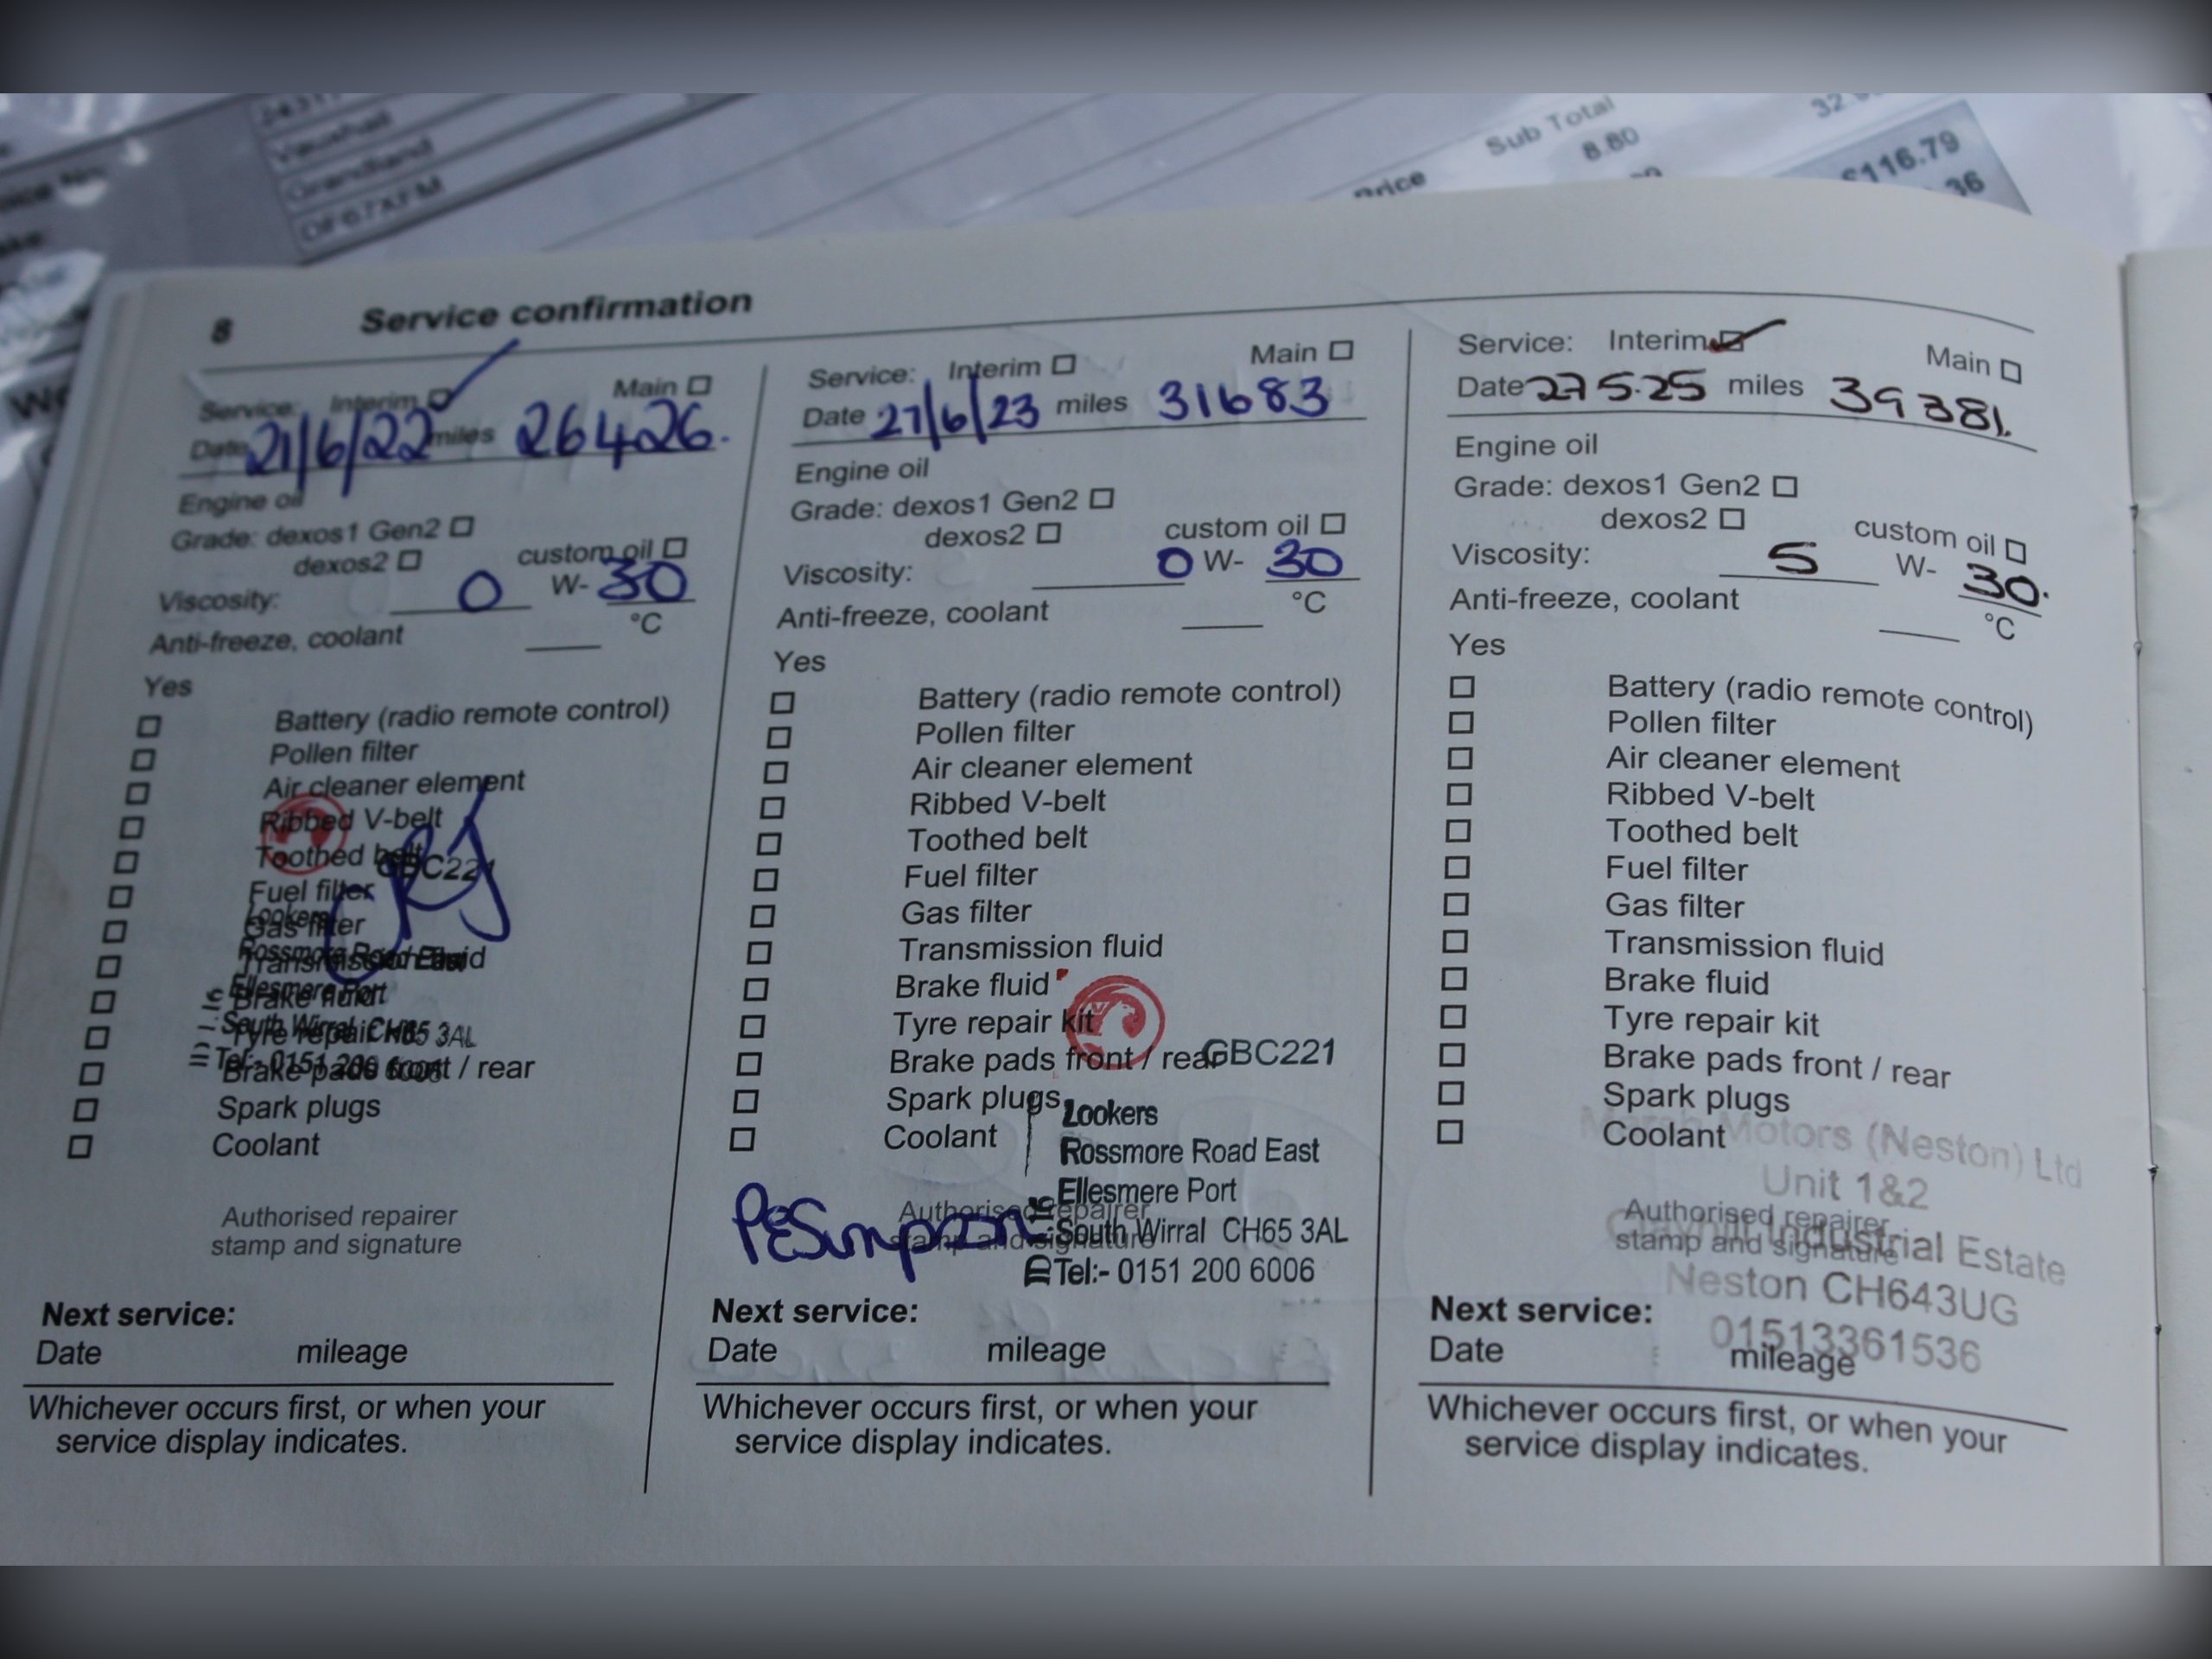 Vauxhall
Grandland
DF67XFM
Sub Total
8.80
Price
£116.79
36
8 Service confirmation
Service: Interim Main
Date 21/6/22 miles 26426.
Engine oil
Grade: dexos1 Gen2
dexos2 custom oil
Viscosity: 0 W- 30
Anti-freeze, coolant °C
Yes
Battery (radio remote control)
Pollen filter
Air cleaner element
Ribbed V-belt
Toothed belt
GBC221
Fuel filter
Lookers
Gas filter
Rossmore Road East
Transmission fluid
Ellesmere Port
Brake fluid
South Wirral CH65 3AL
Tyre repair kit
Tel:- 0151 200 6006
Brake pads front / rear
Spark plugs
Coolant
Authorised repairer
stamp and signature
Next service:
Date mileage
Whichever occurs first, or when your
service display indicates.
Service: Interim Main
Date 27/6/23 miles 31683
Engine oil
Grade: dexos1 Gen2
dexos2 custom oil
Viscosity: 0 W- 30
Anti-freeze, coolant °C
Yes
Battery (radio remote control)
Pollen filter
Air cleaner element
Ribbed V-belt
Toothed belt
Fuel filter
Gas filter
Transmission fluid
Brake fluid
Tyre repair kit
Brake pads front / rear
GBC221
Spark plugs
Lookers
Coolant
Rossmore Road East
Ellesmere Port
Authorised repairer
South Wirral CH65 3AL
stamp and signature
PESimpson
Tel:- 0151 200 6006
Next service:
Date mileage
Whichever occurs first, or when your
service display indicates.
Service: Interim Main
Date 27 5.25 miles 39381.
Engine oil
Grade: dexos1 Gen2
dexos2 custom oil
Viscosity: 5 W- 30.
Anti-freeze, coolant °C
Yes
Battery (radio remote control)
Pollen filter
Air cleaner element
Ribbed V-belt
Toothed belt
Fuel filter
Gas filter
Transmission fluid
Brake fluid
Tyre repair kit
Brake pads front / rear
Spark plugs
Coolant
Motors (Neston) Ltd
Unit 1&2
Authorised repairer
Clayhill Industrial Estate
stamp and signature
Neston CH643UG
01513361536
Next service:
Date mileage
Whichever occurs first, or when your
service display indicates.